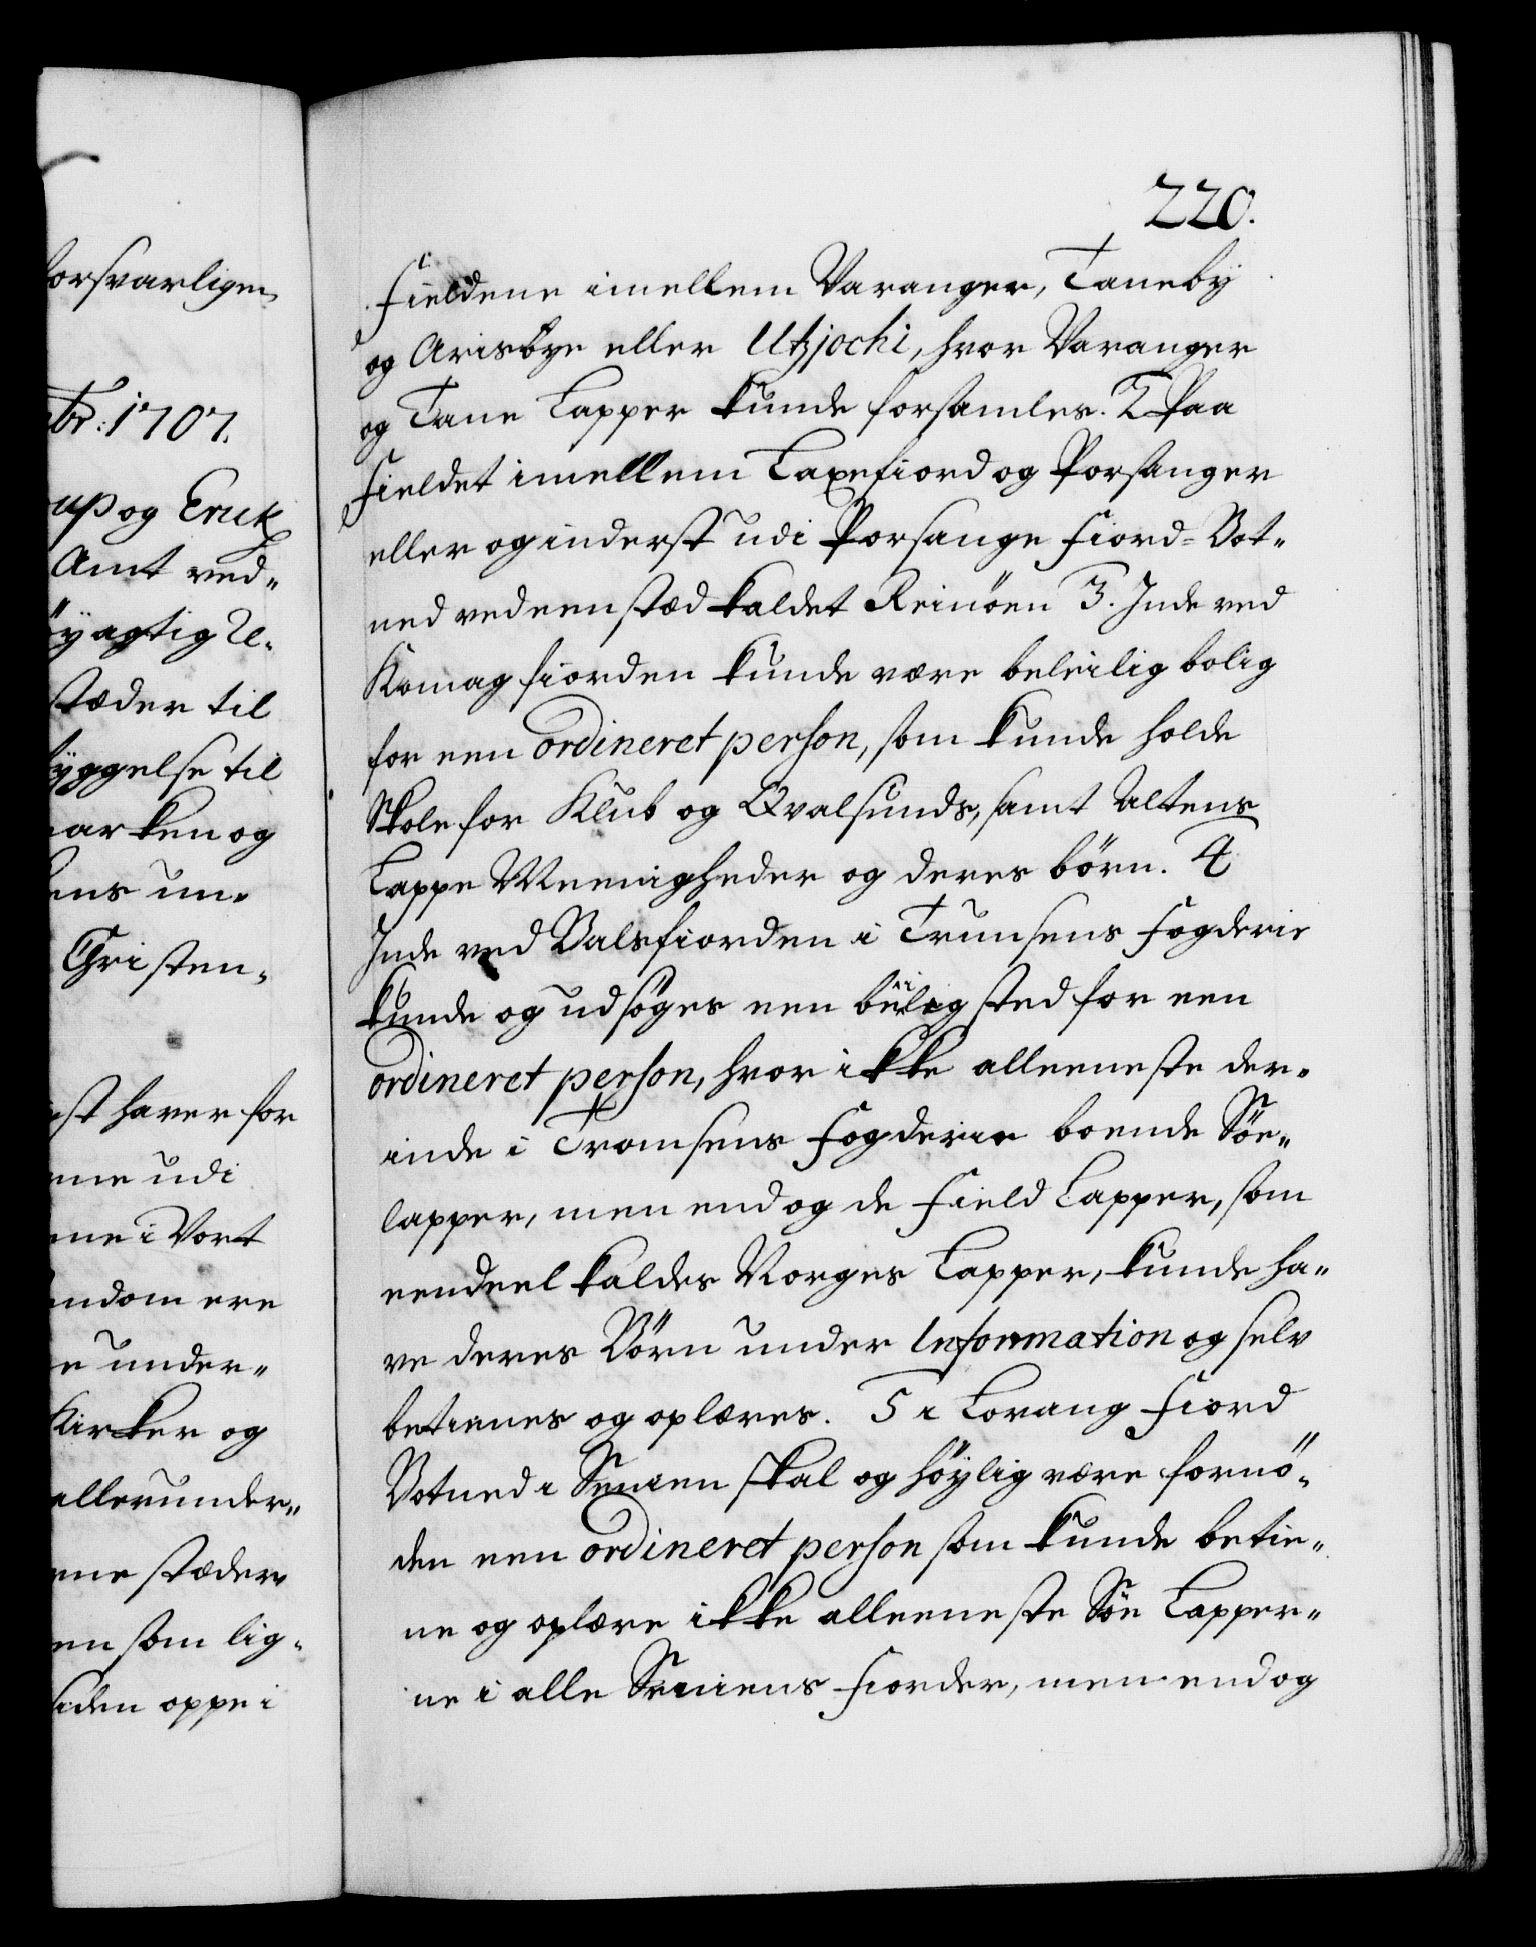 forsvarligen
br: 1707.
up og Erick
Amt ved-
öyagtig Ul-
stæder til
byggelse til
marken og
ens un-
Christen-
st haver for
rne udi
ne i Vort
endom ere
e under-
Kirker og
allerunder-
rne stæder
en som lig-
siden oppe i
220.
Fieldene imellem Varanger, Taneby
og Arisbye eller Utzjochi, hvor Varanger
og Tane Lapper kunde forsamles. 2 Paa
Fieldet imellem Laxefiord og Porsanger
eller og inderst udi Porsange Fiord-Bot-
ned ved een stæd kaldet Reinöen 3. Inde ved
Komagfiorden kunde være beleilig bolig
for een ordineret person, som kunde holde
Skole for Klub og Qvalsunds, samt Altens
Lappe Meenigheder og deres börn. 4
Inde ved Balsfiorden i Trumsens Fogderie
kunde og udsöges een beqvem sted for een
ordineret person, hvor ikke alleeneste der-
inde i Tromsens Fogderie boende Söe-
lapper, men endog de Field Lapper, som
eendeel kaldes Norges Lapper, kunde ha-
ve deres Börn under Information og selv
betienes og oplæres. 5 i Lovang Fiord
Botned i Senien skal og höylig være fornö-
den een ordineret person som kunde betie-
ne og oplære ikke alleeneste Söe Lapper-
ne i alle Seniens Fiorder, men endog